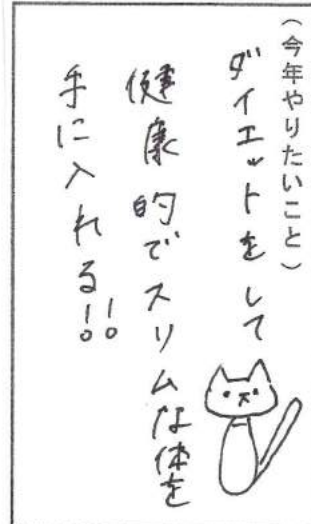 （今年やりたいこと）
ダイエットをして
健康的でスリムな体を
手に入れる!!